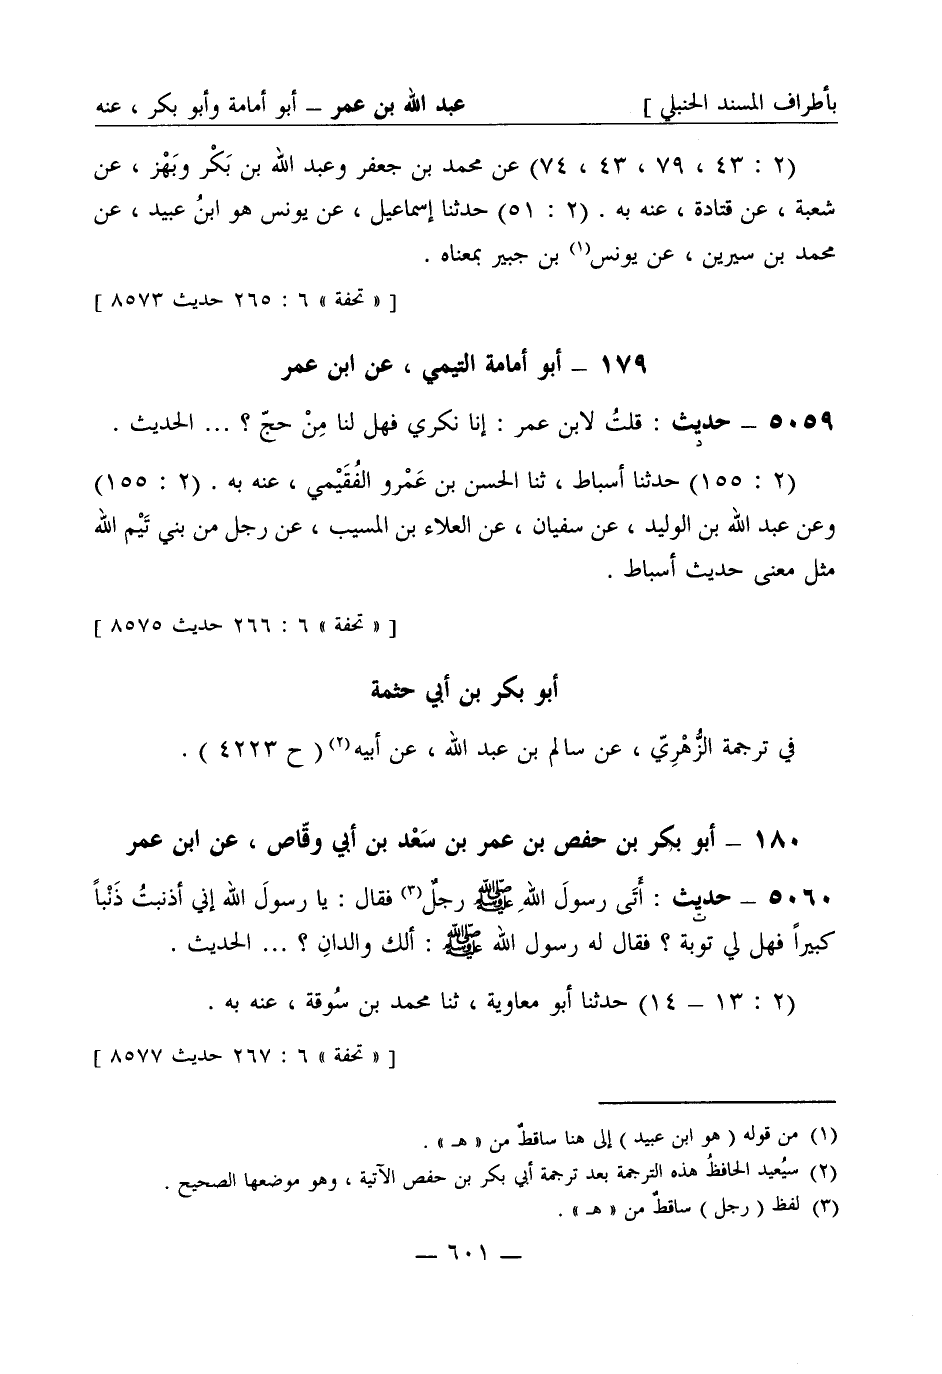 بأطراف المسند الحنبلي ] عبد الله بن عمر – أبو أمامة وأبو بكر ، عنه
(٢ : ٤٣ ، ٧٩ ، ٤٣ ، ٧٤) عن محمد بن جعفر وعبد الله بن بَكْر وبَهْز ، عن
شعبة ، عن قتادة ، عنه به . (٢ : ٥١) حدثنا إسماعيل ، عن يونس هو ابنُ عبيد ، عن
محمد بن سيرين ، عن يونس(١) بن جبير بمعناه .
[ « تحفة » ٦ : ٢٦٥ حديث ٨٥٧٣ ]
١٧٩ – أبو أمامة التيمي ، عن ابن عمر
٥٠٥٩ – حديث : قلتُ لابن عمر : إنا نكري فهل لنا مِنْ حجّ ؟ ... الحديث .
د
(٢ : ١٥٥) حدثنا أسباط ، ثنا الحسن بن عَمْرو الفُقَيْمي ، عنه به . (٢ : ١٥٥)
وعن عبد الله بن الوليد ، عن سفيان ، عن العلاء بن المسيب ، عن رجل من بني تَيْم الله
مثل معنى حديث أسباط .
[ « تحفة » ٦ : ٢٦٦ حديث ٨٥٧٥ ]
أبو بكر بن أبي حثمة
في ترجمة الزُّهْرِيّ ، عن سالم بن عبد الله ، عن أبيه(٢) ( ح ٤٢٢٣ ) .
١٨٠ – أبو بكر بن حفص بن عمر بن سَعْد بن أبي وقّاص ، عن ابن عمر
٥٠٦٠ – حديث : أَتَى رسولَ اللهِ ﷺ رجلٌ(٣) فقال : يا رسولَ الله إني أذنبتُ ذَنْباً
ت
كبيراً فهل لي توبة ؟ فقال له رسول الله ﷺ : ألك والدانِ ؟ ... الحديث .
(٢ : ١٣ – ١٤) حدثنا أبو معاوية ، ثنا محمد بن سُوقة ، عنه به .
[ « تحفة » ٦ : ٢٦٧ حديث ٨٥٧٧ ]
(١) من قوله ( هو ابن عبيد ) إلى هنا ساقطٌ من « هـ » .
(٢) سيُعيد الحافظُ هذه الترجمة بعد ترجمة أبي بكر بن حفص الآتية ، وهو موضعها الصحيح .
(٣) لفظ ( رجل ) ساقطٌ من « هـ » .
– ٦٠١ –